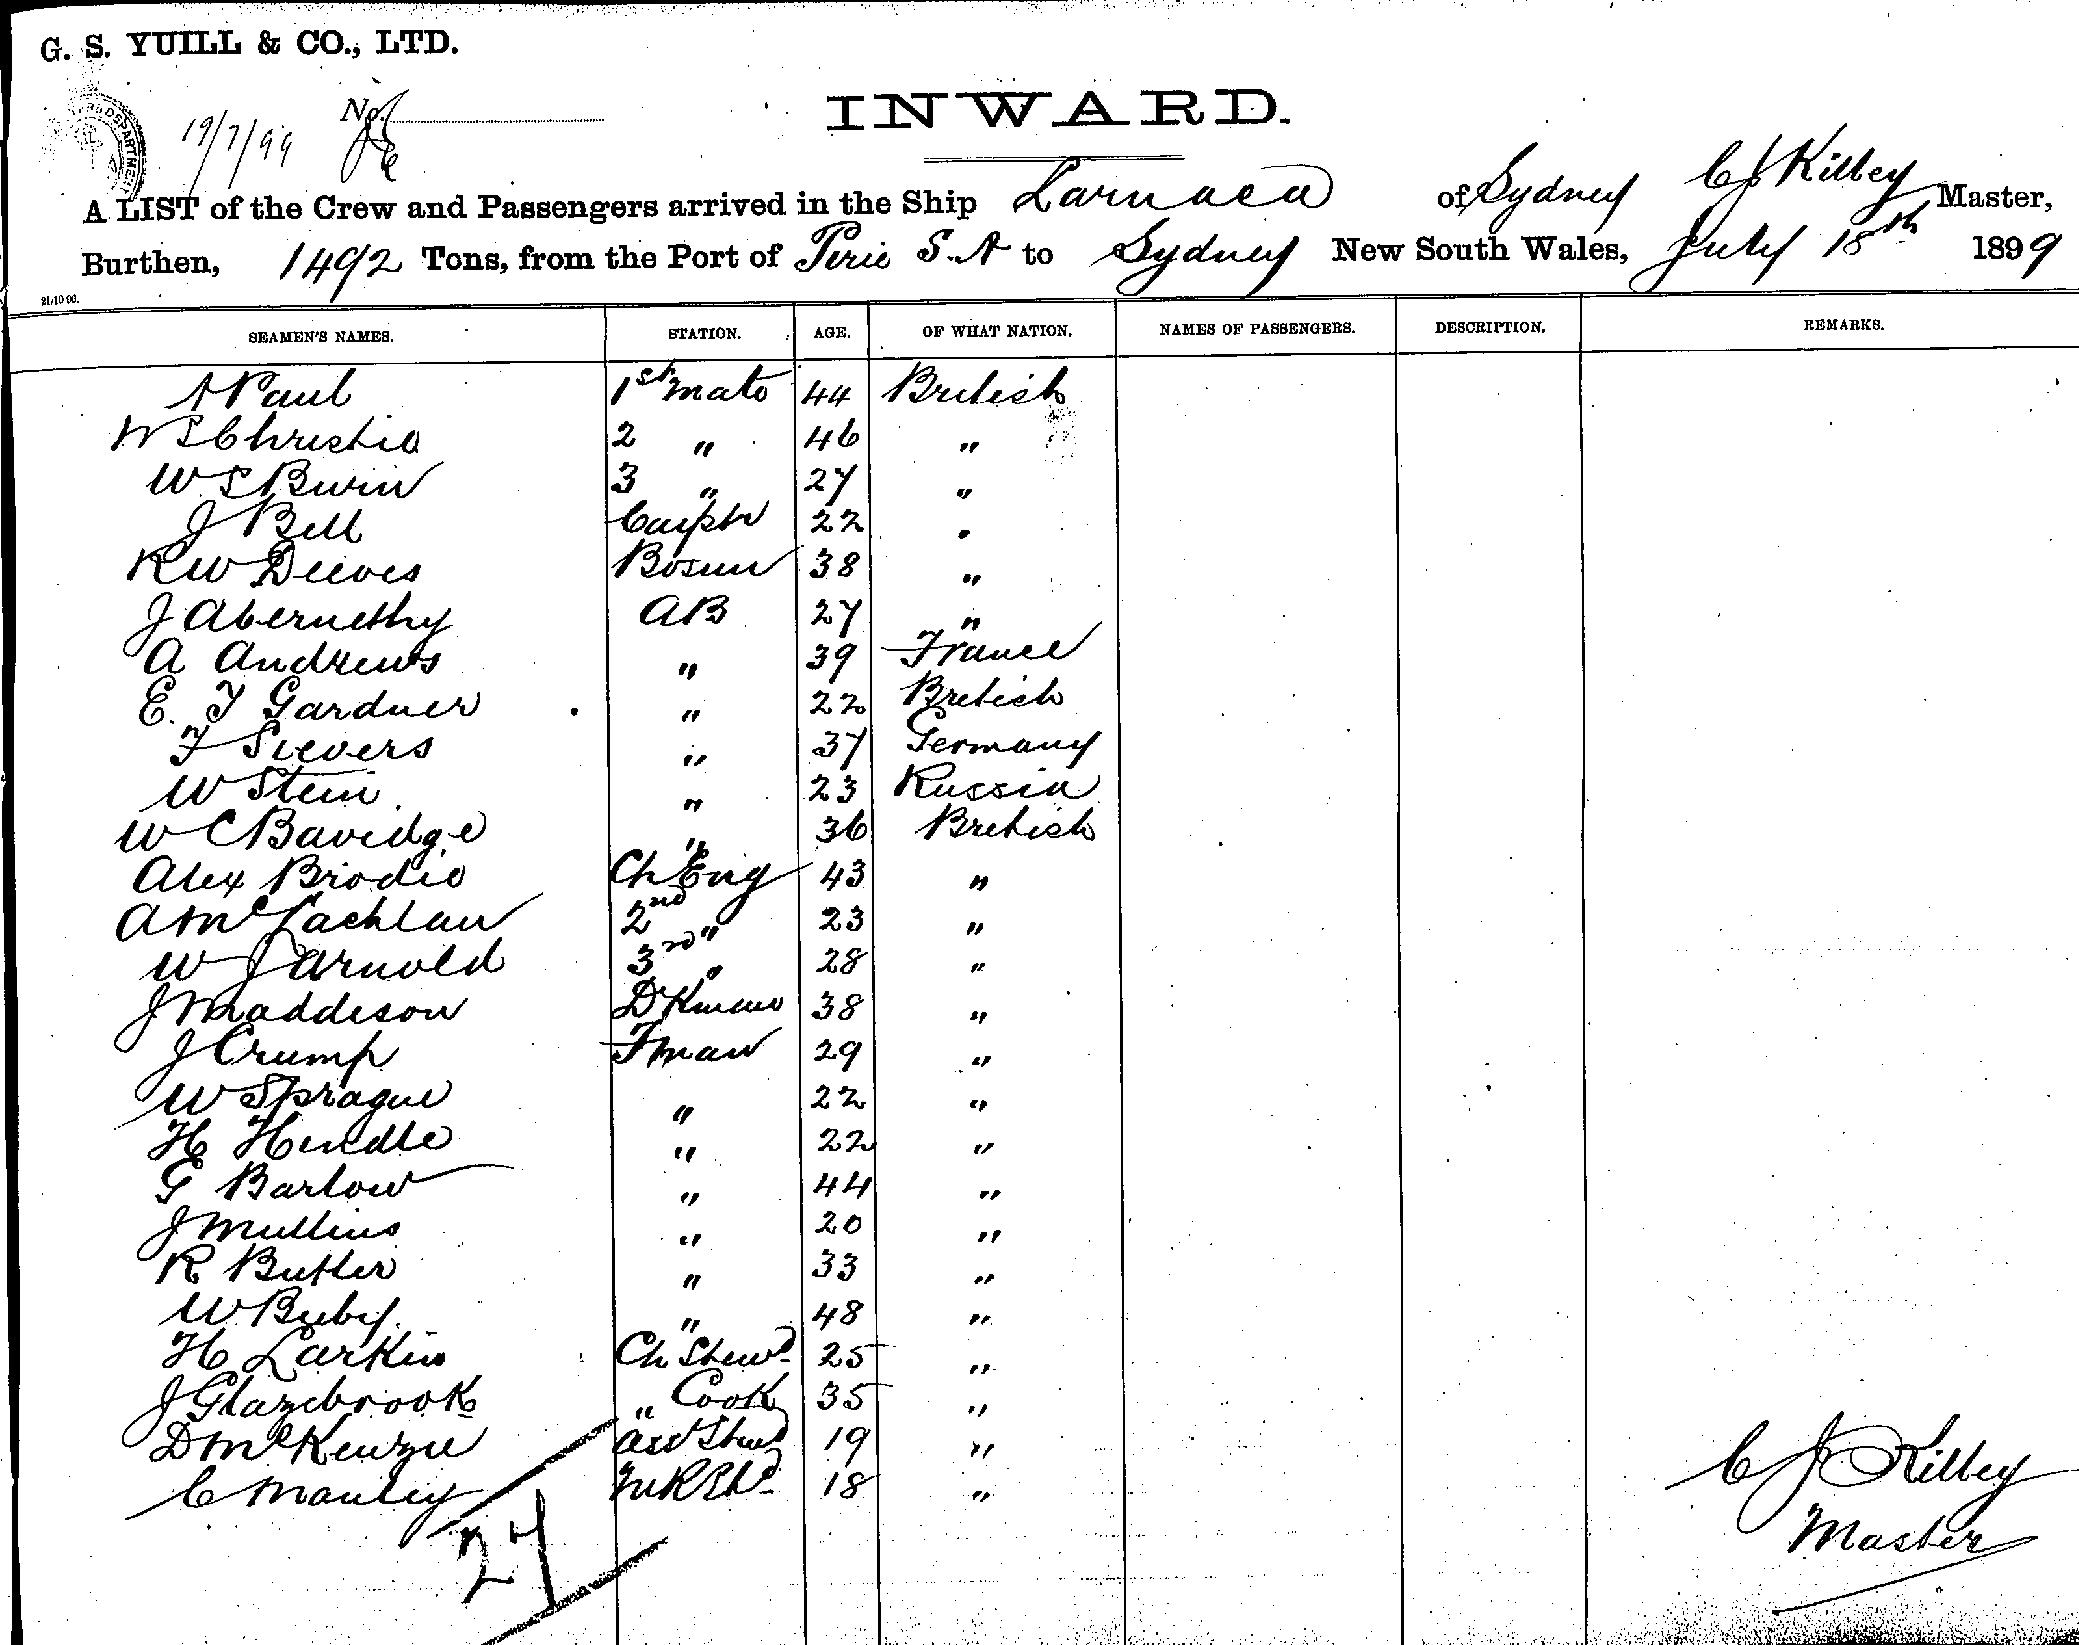 G. S. YUILL & CO., LTD.
19/7/99 No.
INWARD.
A LIST of the Crew and Passengers arrived in the Ship Larnaca of Sydney C J Kilbey Master,
Burthen, 1492 Tons, from the Port of Pirie S.A to Sydney New South Wales, July 18th 1899
21/10 96.
SEAMEN'S NAMES. STATION. AGE. OF WHAT NATION. NAMES OF PASSENGERS. DESCRIPTION. REMARKS.
A Paul 1st mate 44 British
W S Christie 2 " 46 "
W S Burin 3 " 27 "
J Bell Carptr 22 "
R W Deeves Bosun 38 "
J Abernethy AB 27 "
A Andrews " 39 France
E. J Gardner " 22 British
F Sievers " 37 Germany
W Stein " 23 Russia
W C Bavidge " 36 British
Alex Brodie Ch Eng 43 "
A McLachlan 2nd " 23 "
W J Arnold 3rd " 28 "
J Maddison DKman 38 "
J Crump Fman 29 "
W Sprague " 22 "
H Hindle " 22 "
G Barlow " 44 "
J Mullins " 20 "
R Butler " 33 "
W Buby " 48 "
H Larkin Ch Stewd 25 "
J Glazebrook " Cook 35 "
D McKenzie Asst Stewd 19 "
C Manley 18 "
27
C J Kilbey
Master